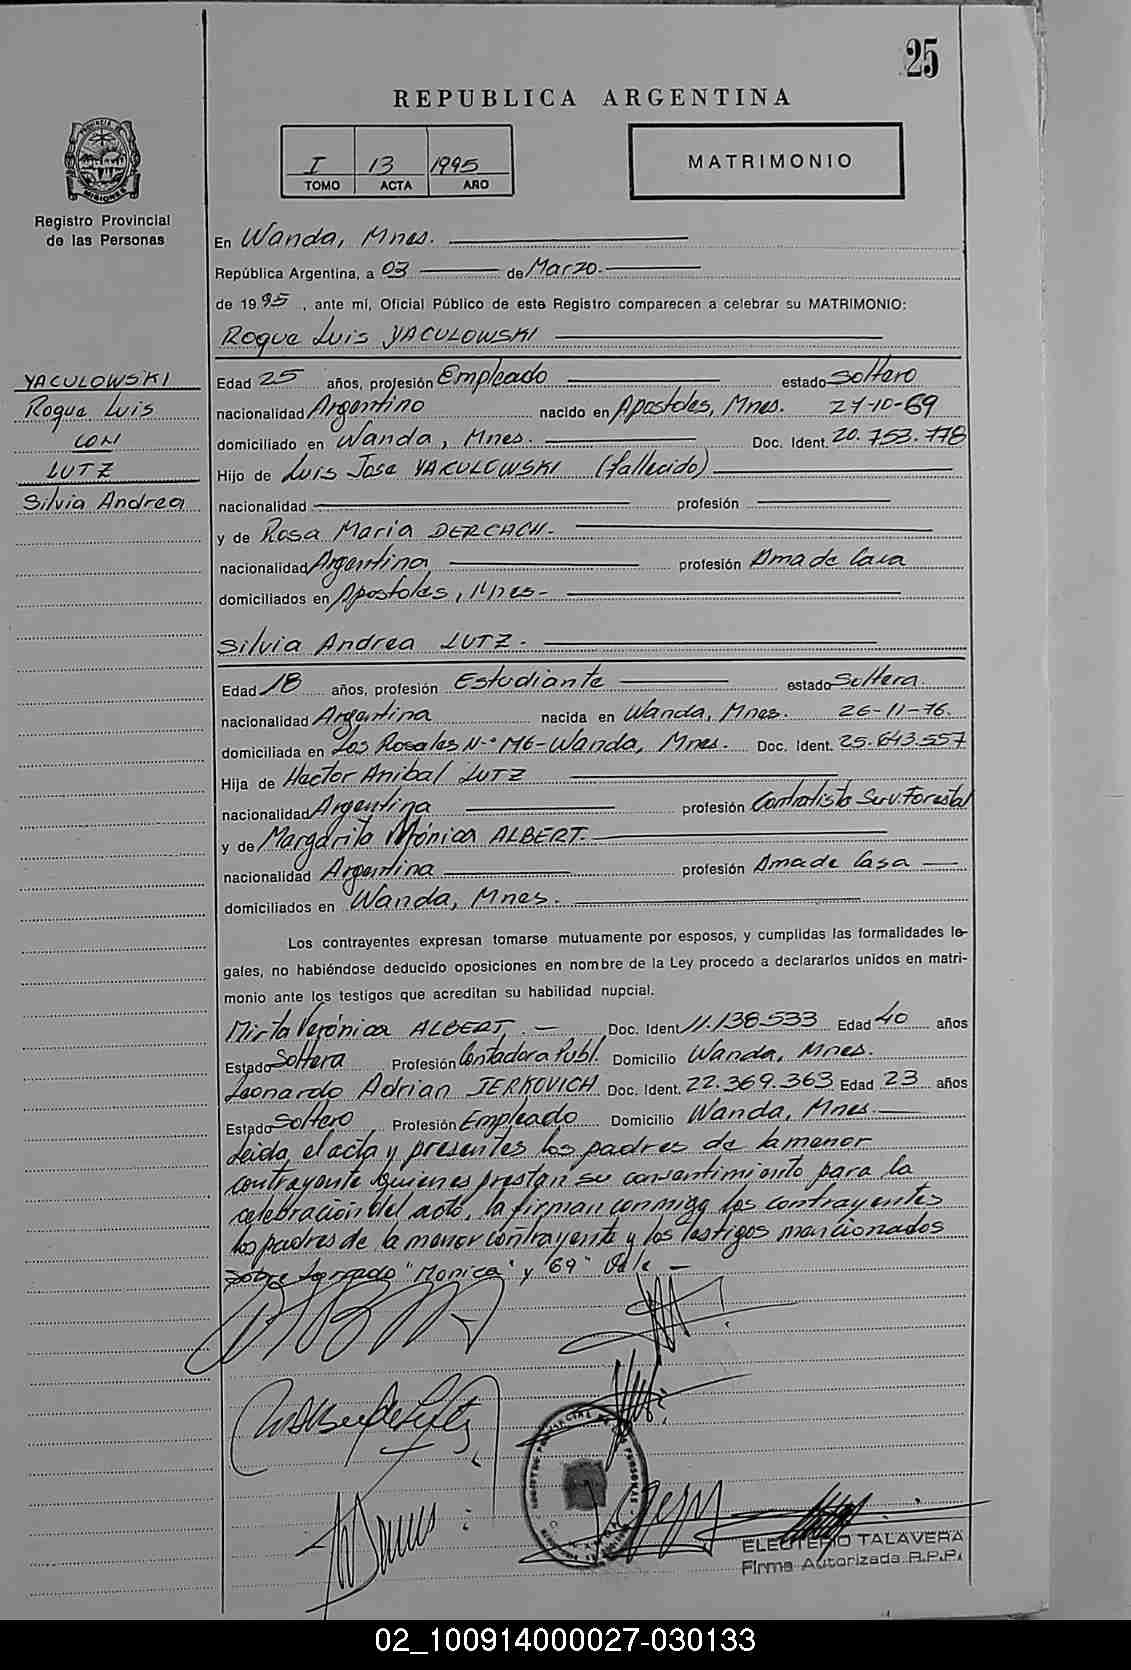 25
REPUBLICA ARGENTINA
I 13 1995
TOMO ACTA AÑO
MATRIMONIO
PROVINCIA DE MISIONES
Registro Provincial
de las Personas
En Wanda, Mnes.
República Argentina, a 03 de Marzo.
de 1995, ante mí, Oficial Público de este Registro comparecen a celebrar su MATRIMONIO:
Roque Luis YACULOWSKI
YACULOWSKI
Roque Luis
CON
LUTZ
Silvia Andrea
Edad 25 años, profesión Empleado estado Soltero
nacionalidad Argentino nacido en Apostoles, Mnes. 27-10-69
domiciliado en Wanda, Mnes. Doc. Ident. 20.753.778
Hijo de Luis Jose YACULOWSKI (fallecido)
nacionalidad profesión
y de Rosa Maria DERCACH.
nacionalidad Argentina profesión Ama de Casa
domiciliados en Apostoles, Mnes-
Silvia Andrea LUTZ.
Edad 18 años, profesión Estudiante estado Soltera.
nacionalidad Argentina nacida en Wanda, Mnes. 26-11-76.
domiciliada en Los Rosales N-º M6-Wanda, Mnes. Doc. Ident. 25.643.557
Hija de Hector Anibal LUTZ
nacionalidad Argentina profesión Contratista Serv. Forestal
y de Margarita Mónica ALBERT.
nacionalidad Argentina profesión Ama de Casa
domiciliados en Wanda, Mnes.
Los contrayentes expresan tomarse mutuamente por esposos, y cumplidas las formalidades le-
gales, no habiéndose deducido oposiciones en nombre de la Ley procedo a declararlos unidos en matri-
monio ante los testigos que acreditan su habilidad nupcial.
Mirta Verónica ALBERT. Doc. Ident 11.138.533 Edad 40 años
Estado Soltera Profesión Contadora Publ. Domicilio Wanda, Mnes.
Leonardo Adrian JERKOVICH Doc. Ident. 22.369.363 Edad 23 años
Estado Soltero Profesión Empleado Domicilio Wanda, Mnes.
Leida el acta y presentes los padres de la menor
contrayente quienes prestan su consentimiento para la
celebración del acto, la firman conmigo los contrayentes
los padres de la menor contrayente y los testigos mencionados
Sobre borrado "Monica" y "69" Vale -
ELEUTERIO TALAVERA
Firma Autorizada R.P.P.
02_100914000027-030133